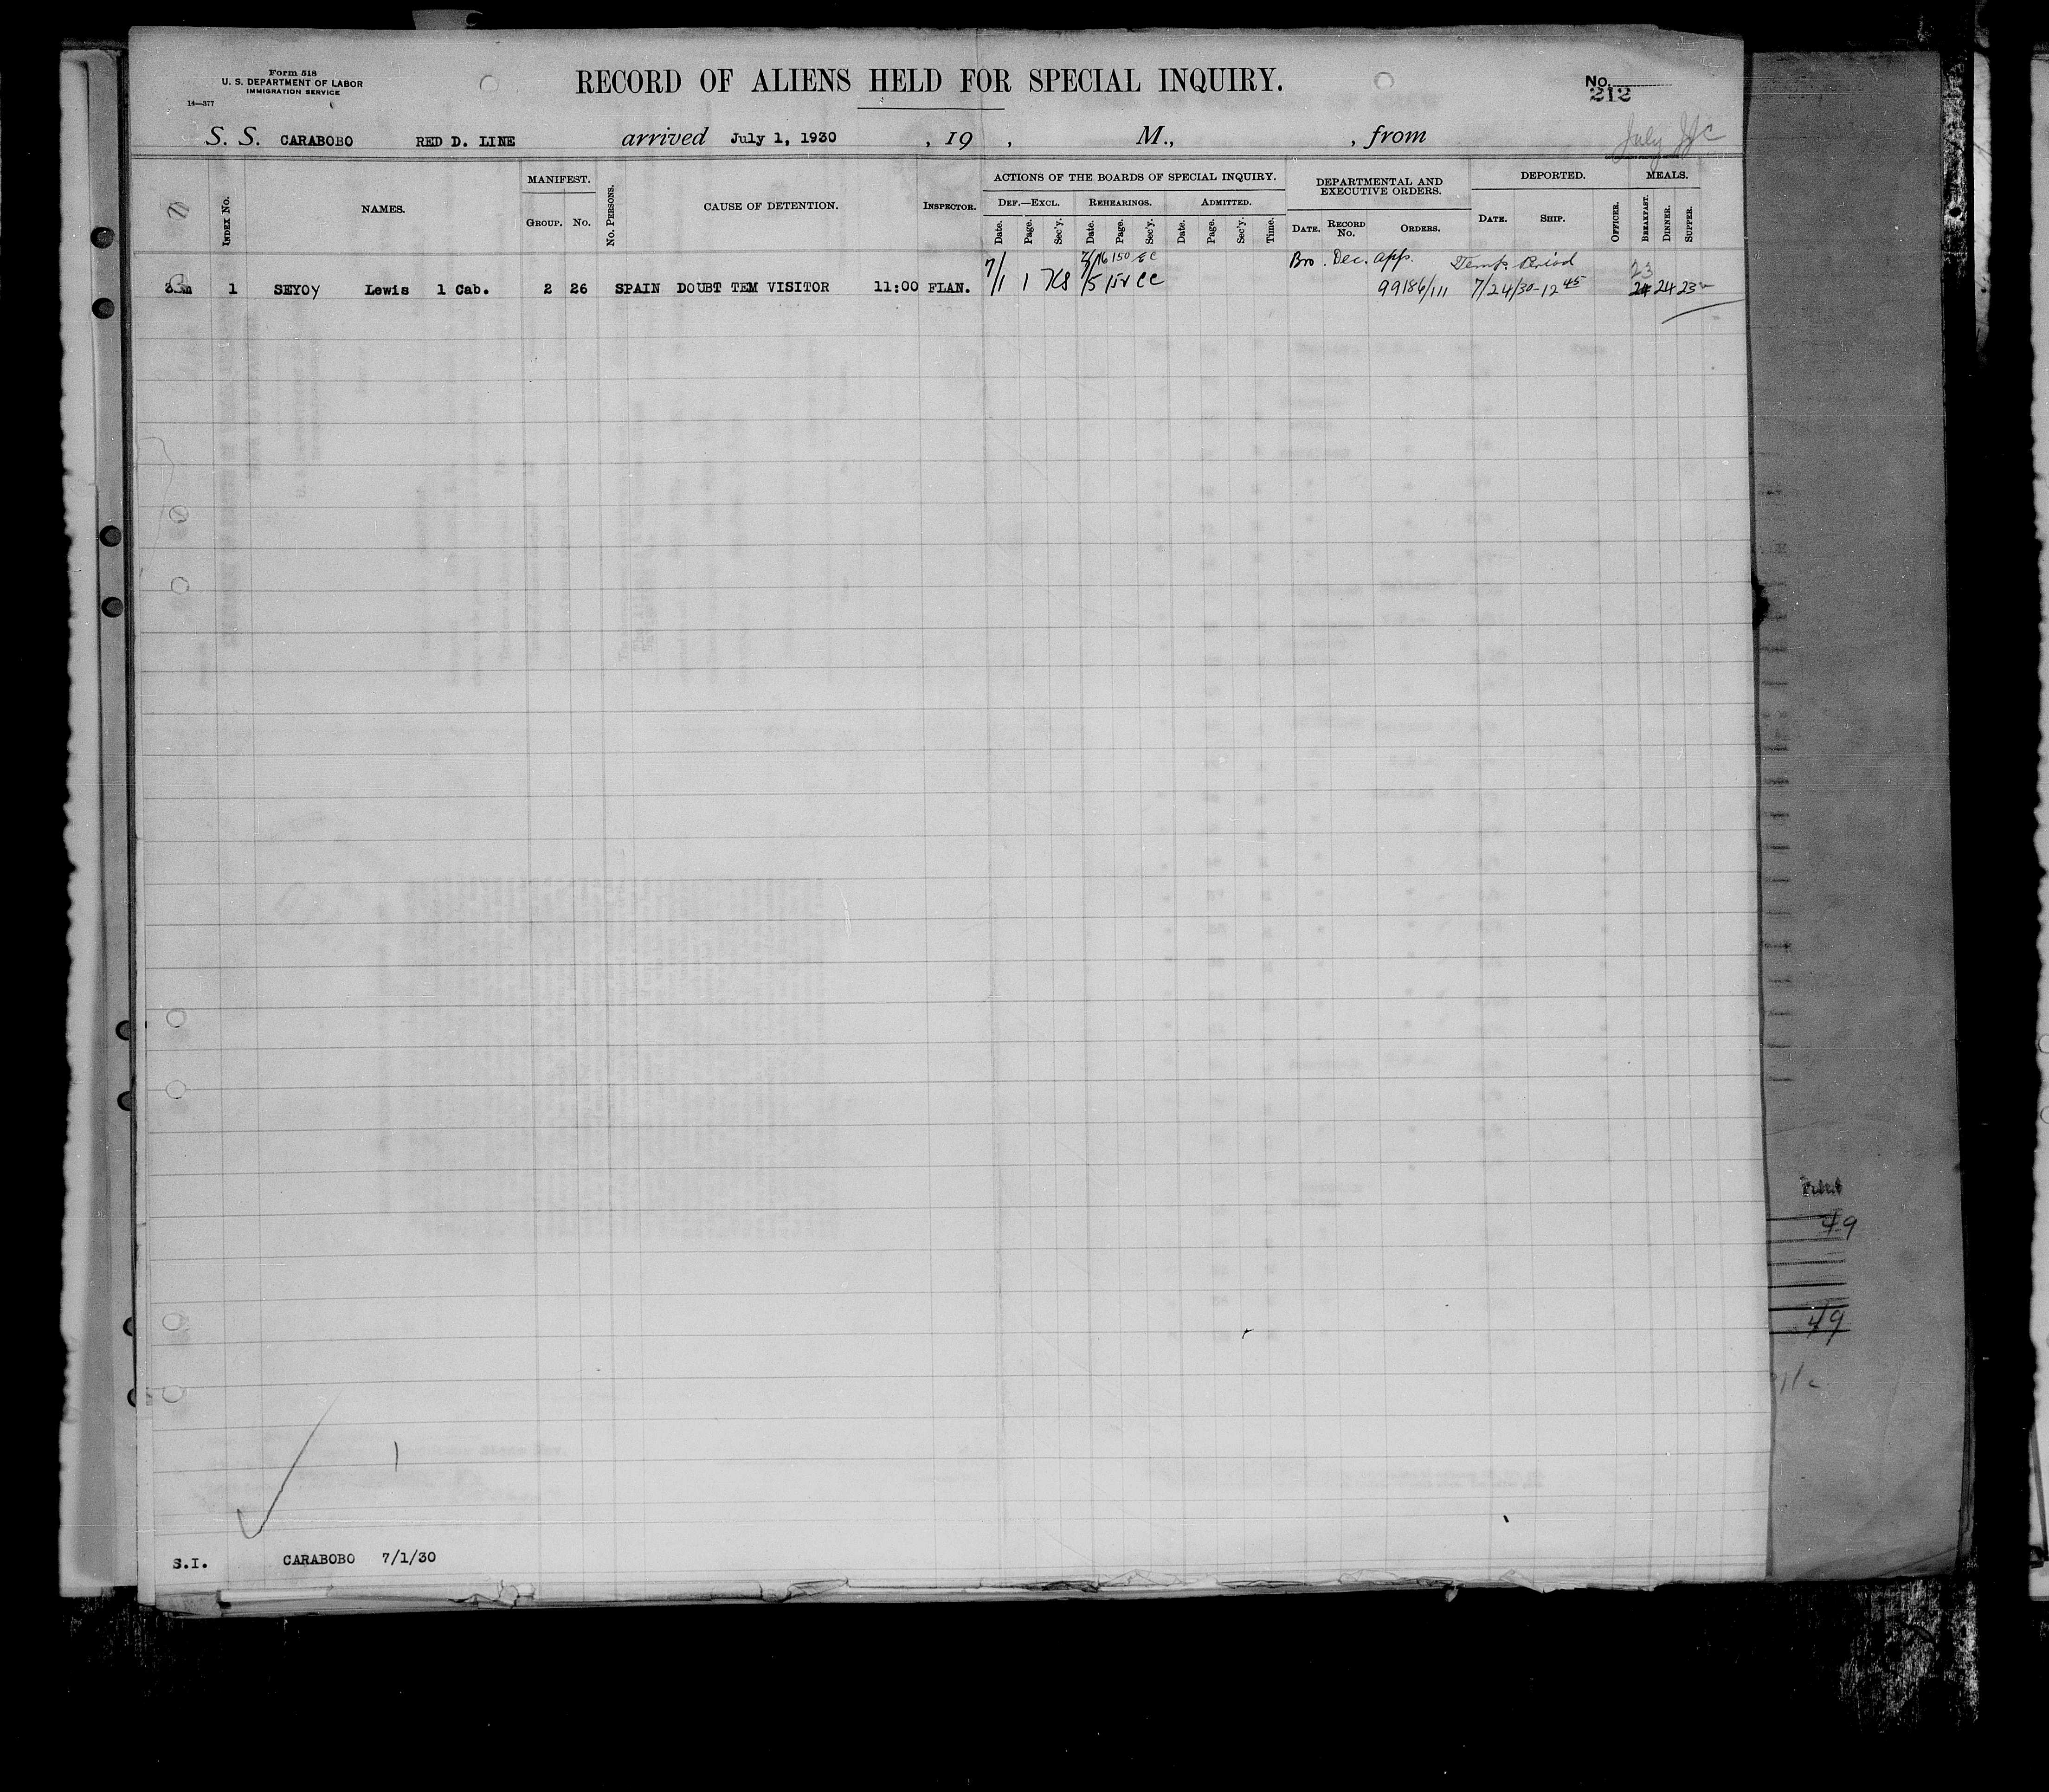 Form 518
U. S. DEPARTMENT OF LABOR
IMMIGRATION SERVICE
14—377
RECORD OF ALIENS HELD FOR SPECIAL INQUIRY.
No.
212
S. S. CARABOBO RED D. LINE arrived July 1, 1930 , 19 , M., , from
July
INDEX No.
NAMES.
MANIFEST.
GROUP. No.
No. PERSONS.
CAUSE OF DETENTION.
INSPECTOR.
ACTIONS OF THE BOARDS OF SPECIAL INQUIRY.
DEF.—EXCL. REHEARINGS. ADMITTED.
Date. Page. Sec'y. Date. Page. Sec'y. Date. Page. Sec'y. Time.
DEPARTMENTAL AND
EXECUTIVE ORDERS.
DATE. RECORD No. ORDERS.
DEPORTED.
DATE. SHIP.
OFFICER.
MEALS.
BREAKFAST. DINNER. SUPPER.
7/16 150 EC Bro. Dec. app. Temp. Period 23
1 SEYOY Lewis 1 Cab. 2 26 SPAIN DOUBT TEM VISITOR 11:00 FLAN. 7/1 1 CC 99186/111 7/24/30-12 45 24 24 23
49
49
S.I. CARABOBO 7/1/30